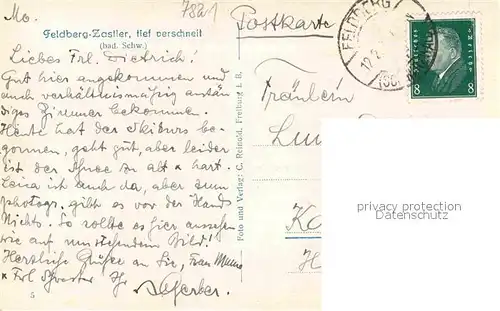 7821
Mo.
Postkarte
Feldberg-Zastler, tief verschneit
(bad. Schw.)
Liebes Frl. Dietrich!
Gut hier angekommen und
auch verhältnismäßig anstän-
diges Zimmer bekommen.
Heute hat der Skikurs be-
gonnen, geht gut, aber leider
ist der Schnee so alt & hart.
ist auch da, aber zum
photogr. gibt es vor der Hand
Nichts. So sollte es hier aussehen
wie auf umstehendem Bild!
Herzliche Grüße an Sie, Frau Mama
& Frl. Schwester Ihr
AGerber.
Foto und Verlag: C. Reinold, Freiburg i. B.
5
FELDBERG
12.2.
8 8
Fräulein
privacy protection
Datenschutz